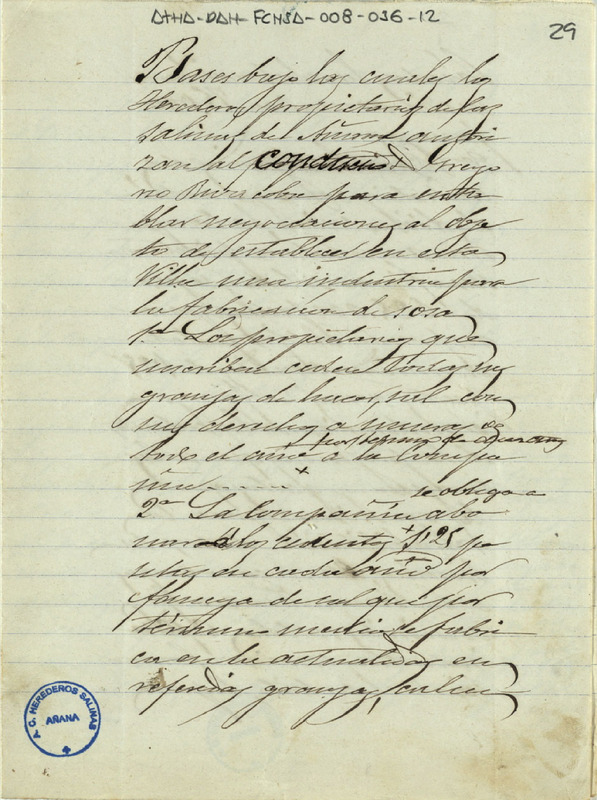 ATHA-DAH-FCNSA-008-036-12
29
Bases bajo las cuales los
Herederos propietarios de las
salinas de Añana autori
zan al Grego
rio para enta
blar negociaciones al obje
to de establecer en esta
Villa una industria para
la fabricación de sosa
1.ª Los propietarios que
suscriben ceden todas sus
granjas de hacer sal con
sus derechos a muera de
por termino de
todo el año a la Compa
ñia
se obliga a
2.ª La Compañia abo
nar a los cedentes 1,25 pe
setas en cada año por
fanega de sal que por
término medio se fabri
ca en la actualidad en
referidas granjas,
A. C. HEREDEROS SALINAS
AÑANA